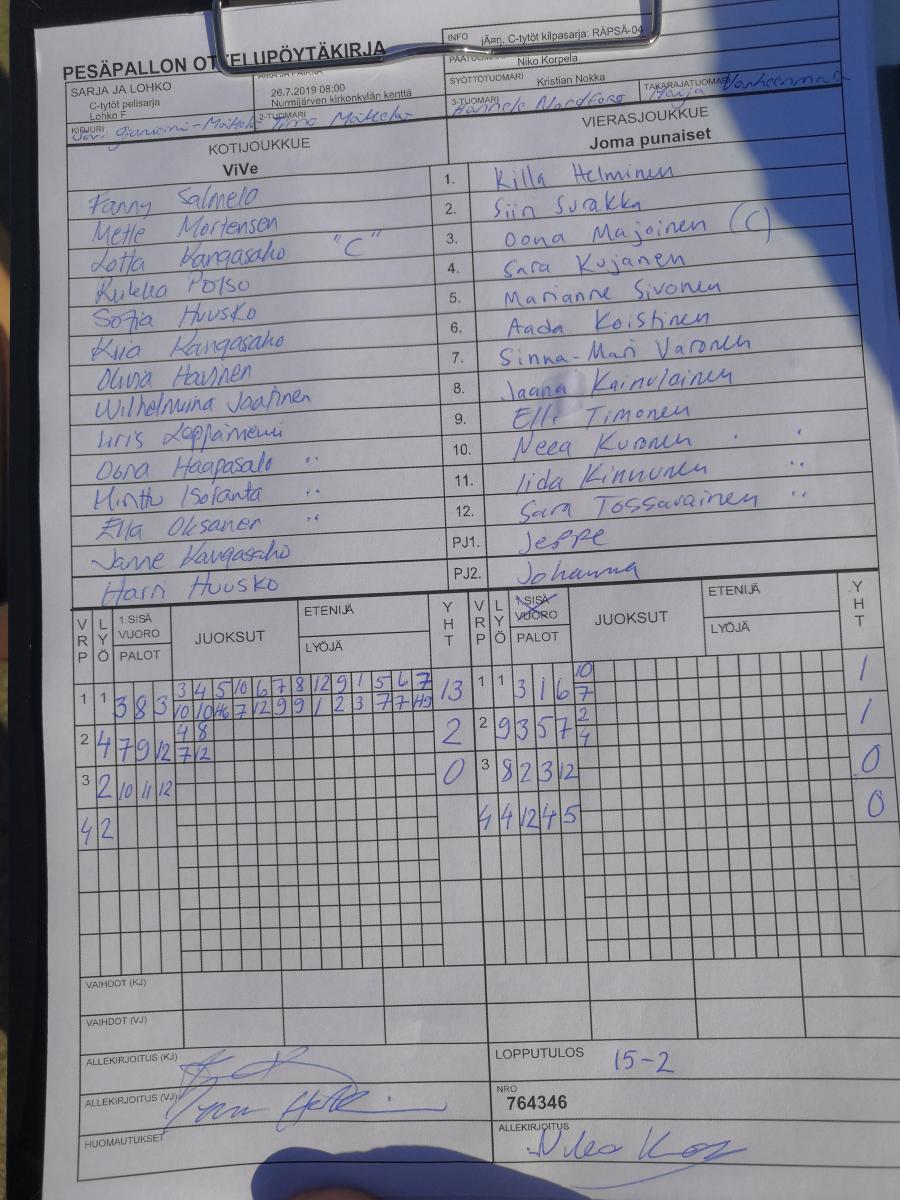 PESÄPALLON OTTELUPÖYTÄKIRJA
INFO jÄ¤rj. C-tytöt kilpasarja: RÄPSÄ-04
Niko Korpela
SARJA JA LOHKO
C-tytöt pelisarja
Lohko F
26.7.2019 08:00
Nurmijärven kirkonkylän kenttä
SYÖTTÖTUOMARI Kristian Nokka
TAKARAJATUOMARI Marja
KIRJURI
2-TUOMARI Timo Mäkelä
3-TUOMARI Hannele Nordfors
KOTIJOUKKUE
ViVe
VIERASJOUKKUE
Joma punaiset
Fanny Salmelo 1. Killa Helminen
Mette Mortensen 2. Siin Surakka
Lotta Kangasaho "C" 3. Oona Majoinen (C)
Rukka Potso 4. Sara Kujanen
Sofia Huusko 5. Marianne Sivonen
Kiia Kangasaho 6. Aada Koistinen
Olivia Havinen 7. Sinna-Mari Varonen
Wilhelmiina Jaatinen 8. Jaana Kainulainen
Iiris Leppäniemi 9. Elli Timonen
Oona Haapasalo " 10. Neea Kuronen
Minttu Isolanta " 11. Iida Kinnunen "
Ella Oksanen " 12. Sara Tossavainen "
Janne Kangasaho PJ1. Jeppe
Harri Huusko PJ2. Johanna
VRP LYÖ 1.SISÄ VUORO PALOT JUOKSUT ETENIJÄ LYÖJÄ YHT VRP LYÖ 1.SISÄ VUORO PALOT JUOKSUT ETENIJÄ LYÖJÄ YHT
3 4 5 10 6 7 8 12 9 1 5 6 7 10
1 1 3 8 3 10 10 46 7 12 9 9 1 2 3 7 7 49 13 1 1 3 1 6 7 1
4 8 2
2 4 7 9 12 7 12 2 2 9 3 5 7 4 1
3 2 10 11 12 0 3 8 2 3 12 0
4 2 4 4 12 4 5 0
VAIHDOT (KJ)
VAIHDOT (VJ)
ALLEKIRJOITUS (KJ)
LOPPUTULOS 15-2
ALLEKIRJOITUS (VJ)
NRO
764346
HUOMAUTUKSET
ALLEKIRJOITUS